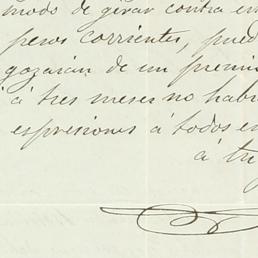 modo de girar contra
pesos corrientes, pued
gozarian de un premi
á tres meses no habri
espresiones á todos en
á tu